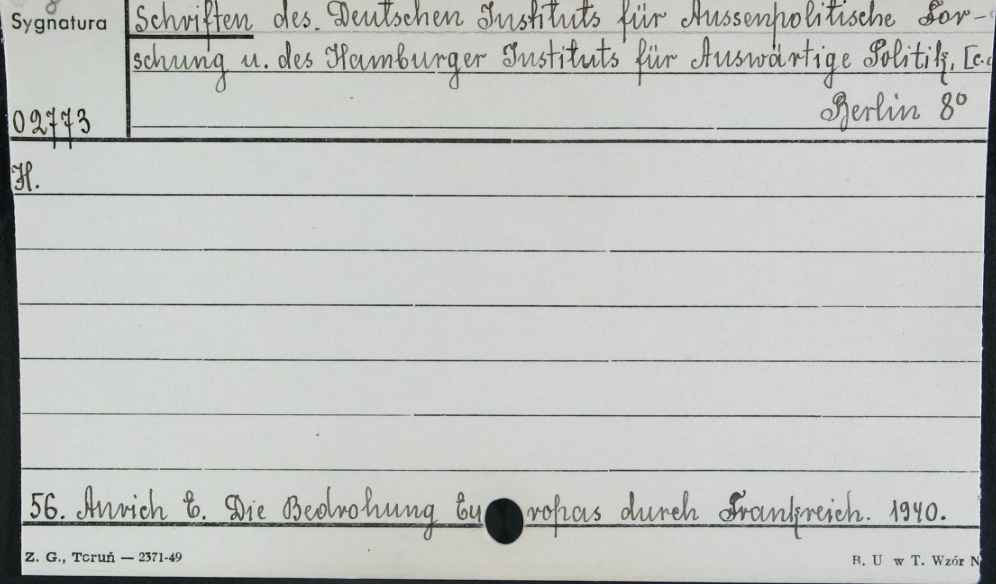 Sygnatura
Schriften des. Deutschen Instituts für Aussenpolitische For-
schung u. des Hamburger Instituts für Auswärtige Politik, [c.
Berlin 8°
02773
H.
56. Anrich E. Die Bedrohung Europas durch Frankreich. 1940.
Z. G., Toruń — 2371-49
B. U w T. Wzór N